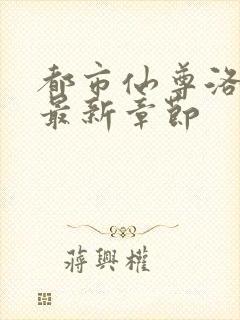 都市仙尊洛
最新章節
蔣興權